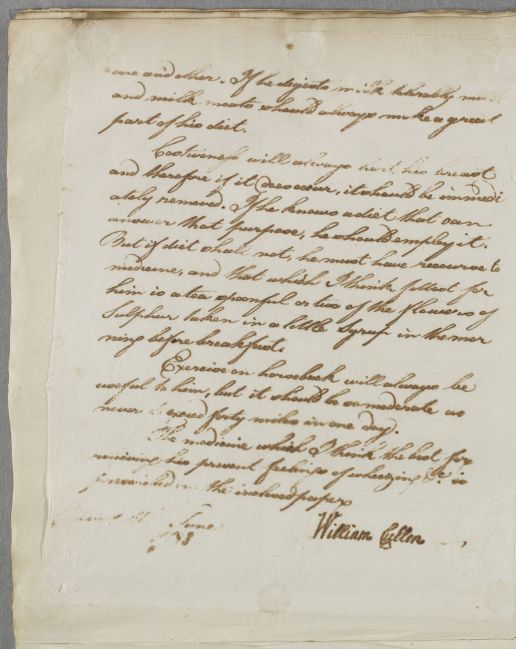 one and other. If he digests milk tolerably milk
and milk meats should always make a great
part of his diet.
Costiveness will always hurt his breast
and therefore if it does occur, it should be immedi
ately removed. If he knows a diet that can
answer that purpose, he should employ it.
But if diet shall not, he must have recourse to
medicine, and that which I think fittest for
him is a tea spoonful or two of the flowers of
Sulphur taken in a little Syrup in the mor
ning before breakfast.
Exercise on horseback will always be
useful to him, but it should be so moderate as
never to exceed forty miles in one day.
The medicine which I think the best for
relieving his present feelings of wheezing &c is
prescribed in the inclosed paper
June
William Cullen